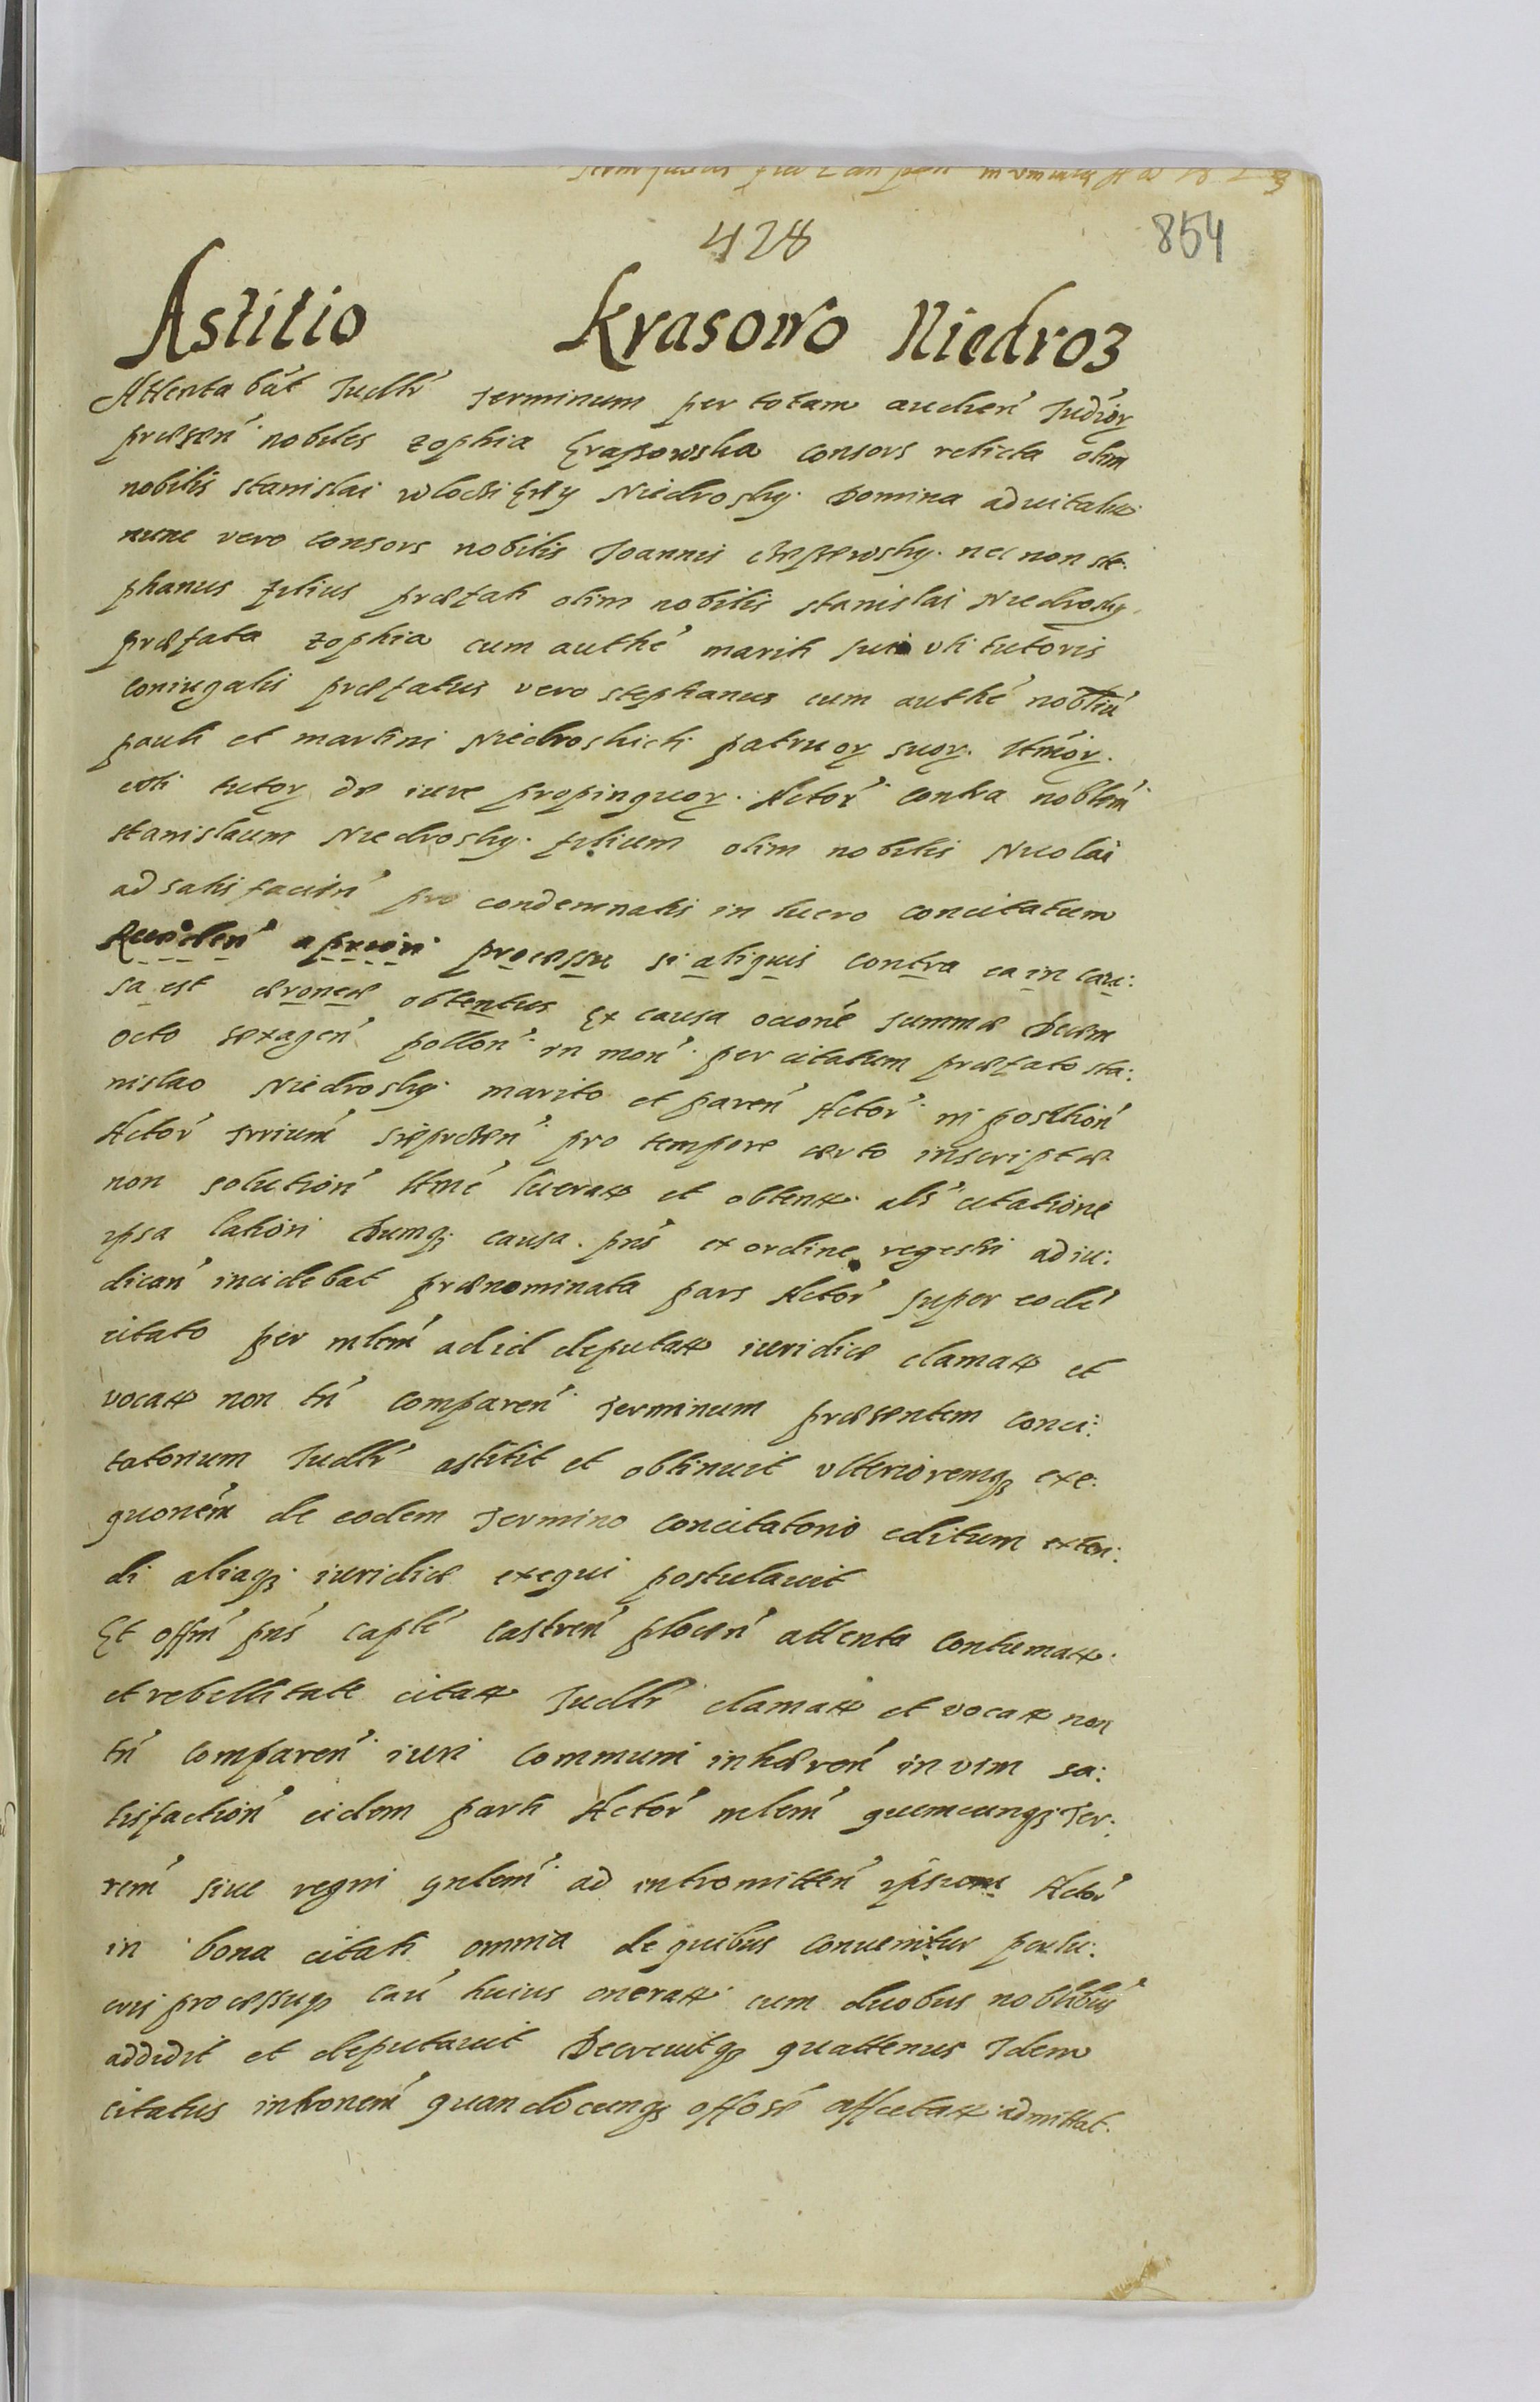 428
854
Astitio Krasowo Niedroz
Attentabat Judlr' Terminum per totam audien' Judior
praesen' nobiles Zophia Krassowska consors relicta olim
nobilis Stanislai Niedrosky Domina aduitalix
nunc vero consors nobilis Joannis nec non Ste:
phanus filius praefati olim nobilis Stanislai Niedrosky
praefata Zophia cum authe' mariti sui vti tutoris
coniugalis praefatus vero Stephanus cum authe' nobliu'
pauli et martini Niedroskich patruor suor. Itmor.
vti tutor de iure propinquor. Actor' contra noblem'
Stanislaum Niedrosky filium olim nobilis Nicolai
ad satisfacien' pro condemnatis in lucro concitatum
Reciden' a priori processu si aliquis contra ea in cau:
sa est erronee obtentus Ex causa ocione' summae Decem
octo sexagen' pollon' in mon' per citatum praefato Sta:
nislao Niedrosky marito et paren' Actor' in position'
Actor' pro tempore certo inscriptae
non solution' Itme' lucrat et obtent als' citatione
ipsa lation' Dumq; causa pns' ex ordine regestri adiu:
dican' incidebat praenominata pars Actor' super eode'
citato per mlem' ad id deputat iuridice clamat et
vocat non tn' comparen' Terminum praesentem conci:
tatorium Judlr' astitit et obtinuit vlterioremq; exe:
quonem' de eodem Termino concitatorio editum exten:
di aliaq; iuridice exequi postulauit
Et offm' pns' caple' castren' plocen' attenta contumat
et rebellitate citat Judlr' clamat et vocat non
tn' comparen' iuri communi inhaeren' in vim sa:
tisfaction' eidem parti Actor' mlem' quemcunq; Ter:
rem' siue regni gnlem' ad intromitten' ipsum Actor'
in bona citati omnia de quibus conuenitur
processuq; cau' huius onerat cum duobus noblibus
addidit et deputauit Decreuitq; quattenus Idem
citatus intronem' quandocunq; offose' affectat admittat.